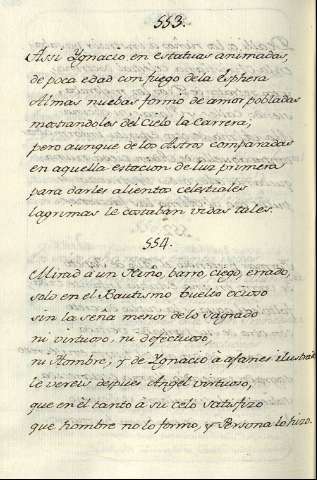 553.
Assi Ygnacio en estatuas animadas,
de poca edad con fuego de la Esphera
Almas nuebas formo de amor pobladas
mostrandoles del Cielo la Carrera;
pero aunque de los Astros comparadas
en aquella estacion de luz primera
para darles alientos celestiales
lagrimas le costaban vidas tales.
554.
Mirad à un Niño, barro, ciego, errado,
solo en el Bautismo buelto ocioso
sin la seña menor de lo sagrado
ni virtuoso, ni defectuoso,
ni Hombre; y de Ygnacio à afanes ilustrado
le vereis despues Angel virtuoso,
que en èl tanto à su celo satisfizo
que hombre no lo formo, y Persona lo hizo.